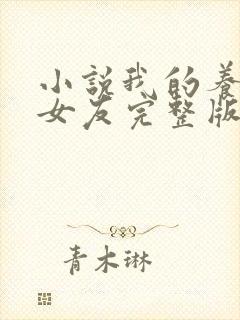 小説我的養
女友完整版
青木琳